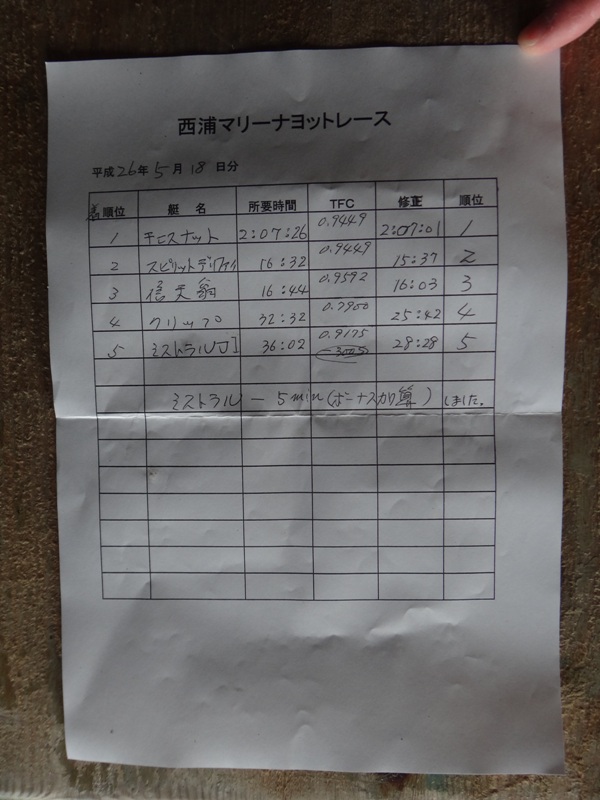 西浦マリーナヨットレース
平成26年5月18日分
着順位 艇名 所要時間 TFC 修正 順位
1 チェスナット 2:07:26 0.9449 2:07:01 1
2 スピリットデリファイ 16:32 0.9449 15:37 2
3 信天翁 16:44 0.9592 16:03 3
4 クリップ 32:32 0.7900 25:42 4
5 ミストラルJ] 36:02 0.9175 28:28 5
ミストラル - 5min (ボーナス加算) しました。